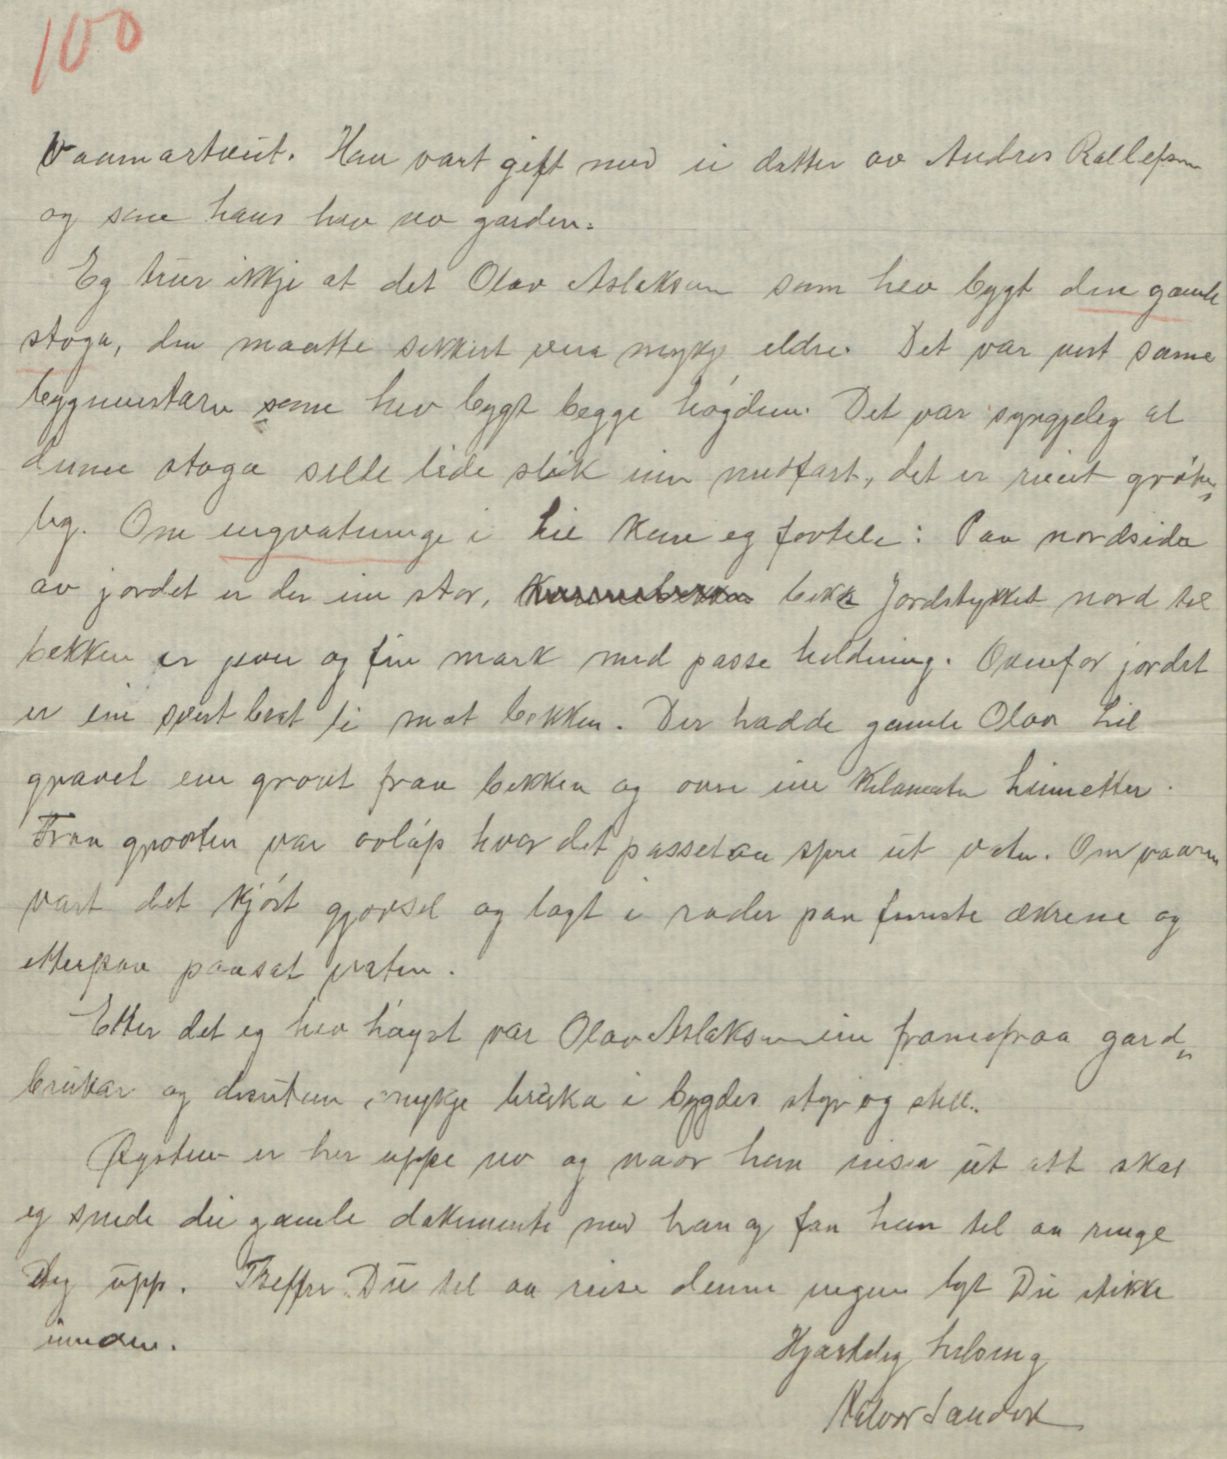 100
Vaamartveit. Han vart gift med ei datter av Andres Rollefsen
og son hans hev no garden.
Eg trur ikkje at det Olav Aslaksen som hev bygt den gamle
stoga, den maatte sikkert vera mykje eldre. Det var vist same
byggmeistaren som hev bygt begge høgdene. Det var syrgjeleg at
denne stoga selde lide slik ein medfart, det er reint grøte„
leg. Om engvatninge i Lie kan eg fortele: Paa nordsida
av jordet er der ein stor, bekk Jordstykket nord til
bekken er jamn og fin mark med passe helding. Ovenfor jordet
er ein svert bratt li mot bekken. Der hadde gamle Olav Lie
gravet ein grøvt fraa bekken og over ein kilometer heimetter.
Fraa grøvten var avløp hvor det passet aa spre ut vatn. Om vaaren
vart det kjørt gjødsel og lagt i rader paa øverste økrene og
etterpaa paasat vatn.
Etter det eg hev høyrt var Olav Aslaksen ein framifraa gard„
brukar og dessutan mykje bruka i bygdes styr og stell.
Øystein er her uppe no og naar han reiser ut att skal
eg sende dei gamle dokumente med han og faa han til aa ringe
Deg upp. Treffer Du til aa reise denne vegen lyt Du stikke
innom.
Hjarteleg helsing
Halvor Landsverk